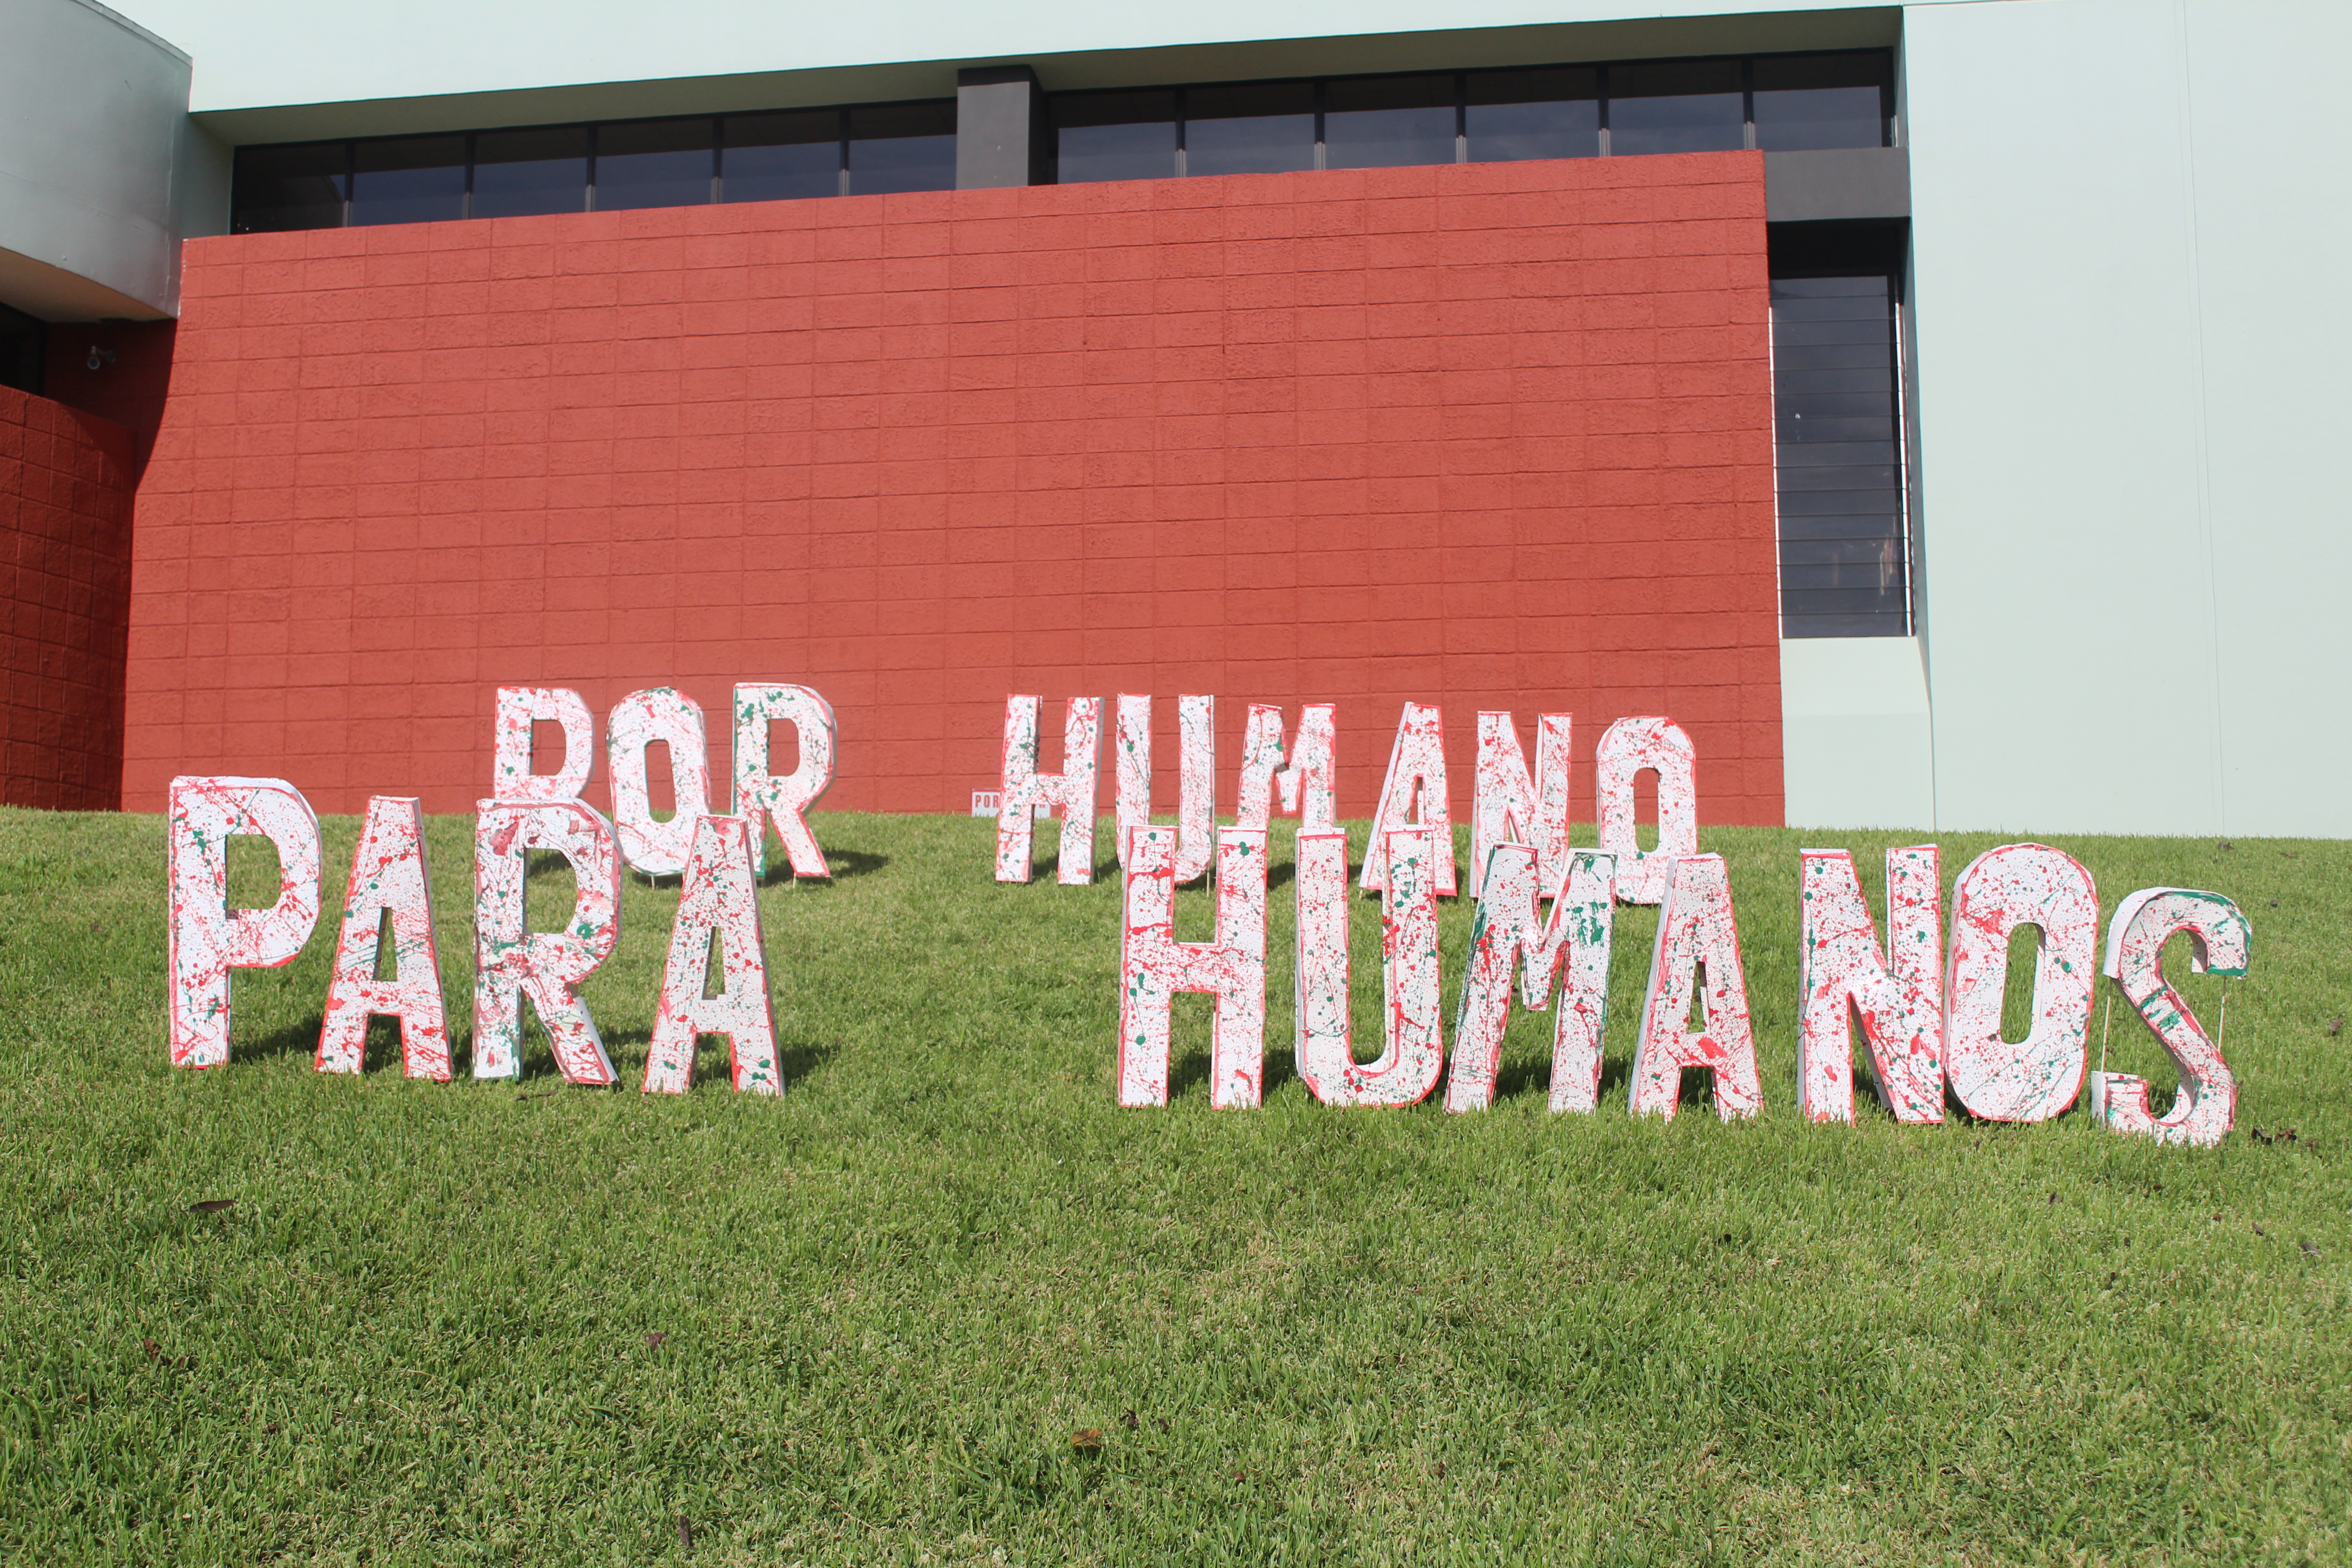 POR HUMANO
POR
PARA HUMANOS